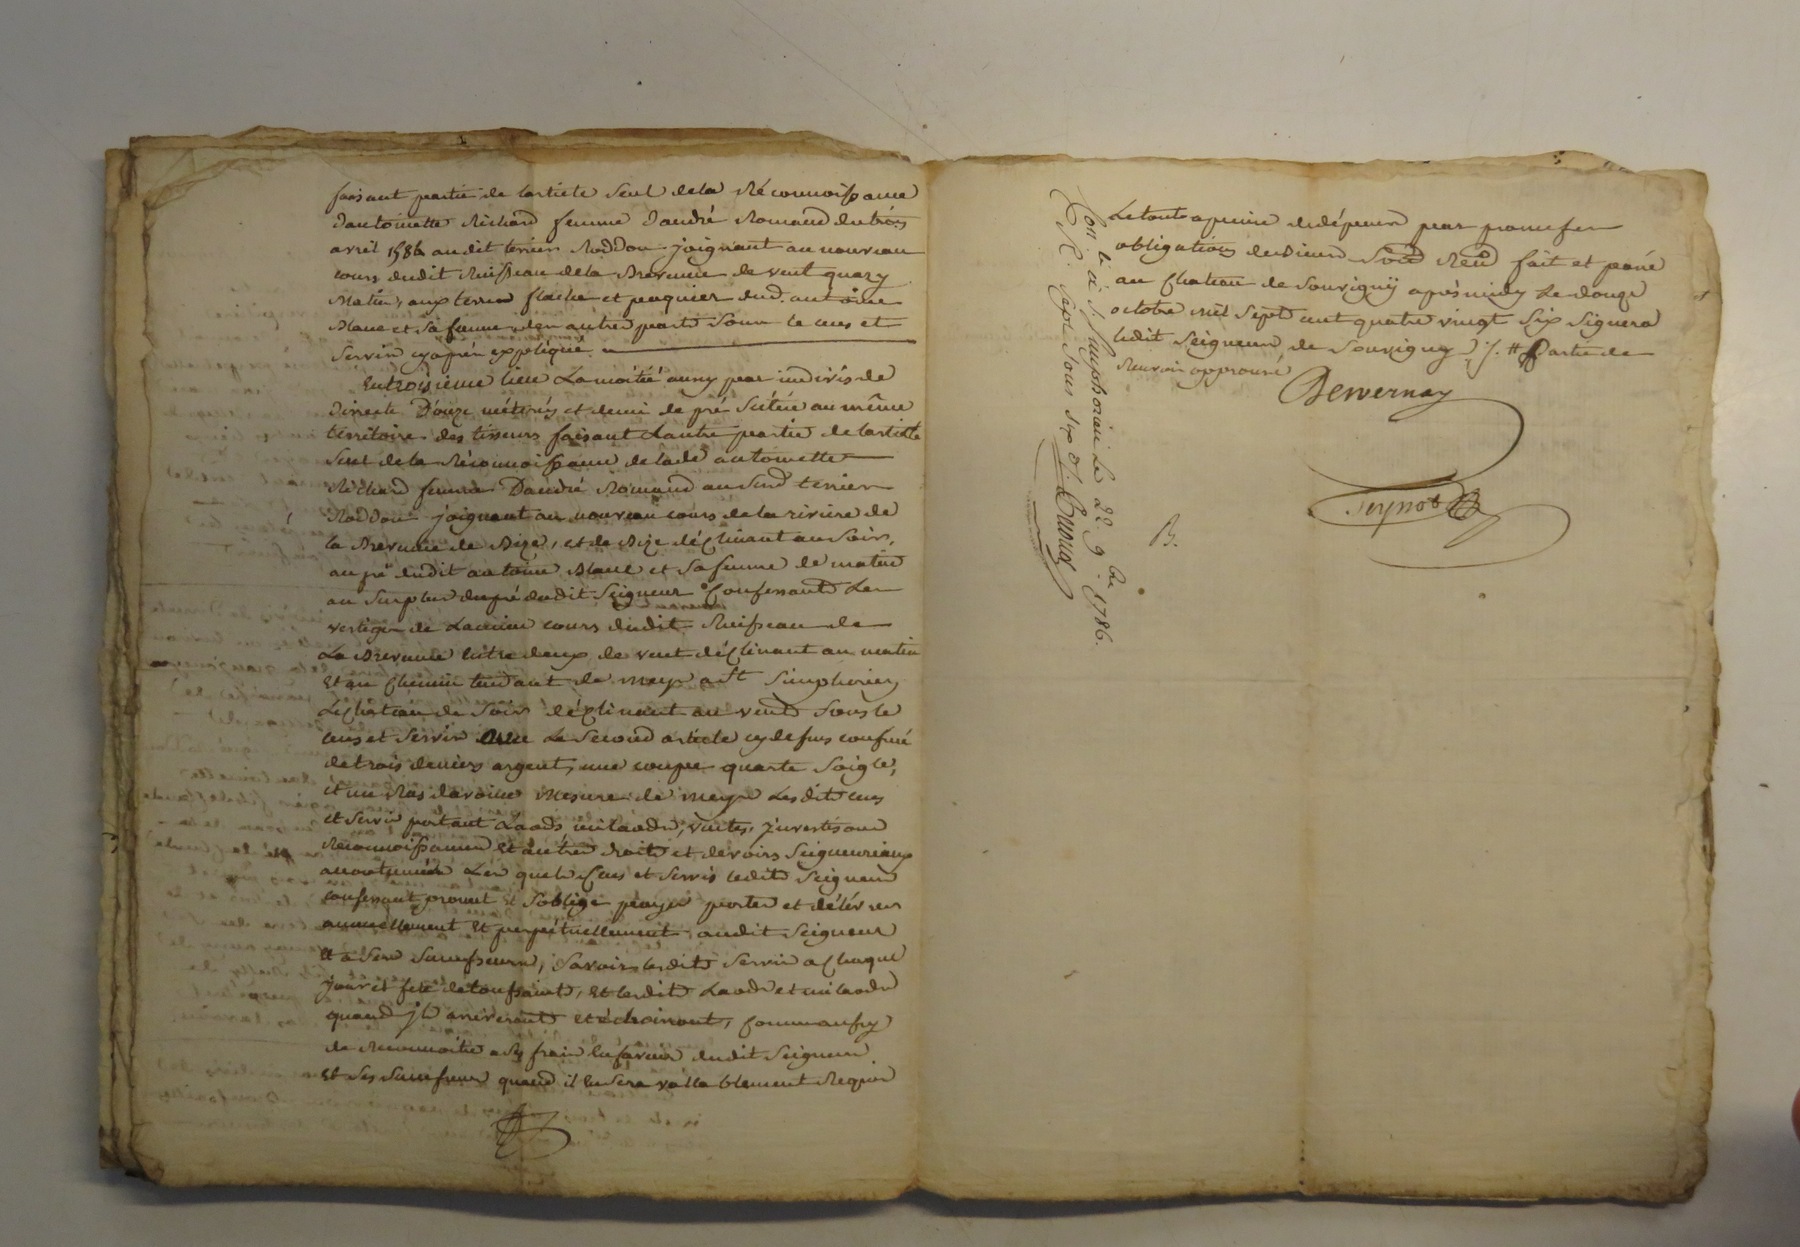 faisant partie de larticle seul dela Réconnoissance
dantoinette Richard femme dandré Romand du trois
avril 1586 audit terrier Roddon joignant au nouveau
cours dudit Ruisseau dela Brevenne de vent quazy
Matin, aux terres et paquier dud. antoine
Blanc et sa femme den autre parts sous le cens et
Servis cy après expliqué
En troisieme lieu La moitié aussy par indivis de
Directe D'onze méterés et demi de pré Scitué au même
territoire des tisseurs faisant Lautre partie de larticle
Seul dela Réconnoissance de lade antoinette
Richard femme Dandré Romand au Susd terrier
Roddon joignant au nouveau cours de la riviere de
la Brevenne de Bize, et de Bize déclinant au Soir,
au pré dudit antoine Blanc et sa femme de matin
au Surplus du pré dudit Seigneur Confessant Les
vestiges de Lancien cours dudit Ruisseau de
La Brevenne Entre deux de vent déclinant au matin
Et au Chemin tendant de Meys a St Simphorien
Le Château de Soir déclinant au vent Sous le
cens et Servis avec Le Second article cy dessus confessé
de trois deniers argent, une coupe quarte Soigle,
et un Ras davoine Mesure de Meys Lesdits cens
et Servis portant Laods milaods, ventes, investisons
Reconnoissances Et autres droits et devoirs Seigneuriaux
accoutumés Les quels Cens et Servis ledit Seigneur
confessant promet et Soblige payer porter et délivrer
annuellement Et perpétuellement audit Seigneur
Et a Ses Successeurs, Savoir lesdits Servis a Chaque
jour et fete de toussaint, Et lesdits Laods et milaods
quand ils arriveront et échoiront, Comme aussy
de Reconnoitre a Ses frais En faveur dudit Seigneur
Et Ses Successeurs quand il En Sera vallablement Requis
Le tout a peine de dépens par promesses
obligations fait et passé
au Chateau de Souvigny après midy Le douze
octobre mil Sept cent quatre vingt Six Signera
ledit Seigneur de Souvigny ./. # Partie de
approuvé
Dewernay
Con. lé à St Simphorien Le 22. 9bre 1786.
R. Sept Sous Six d.
B.